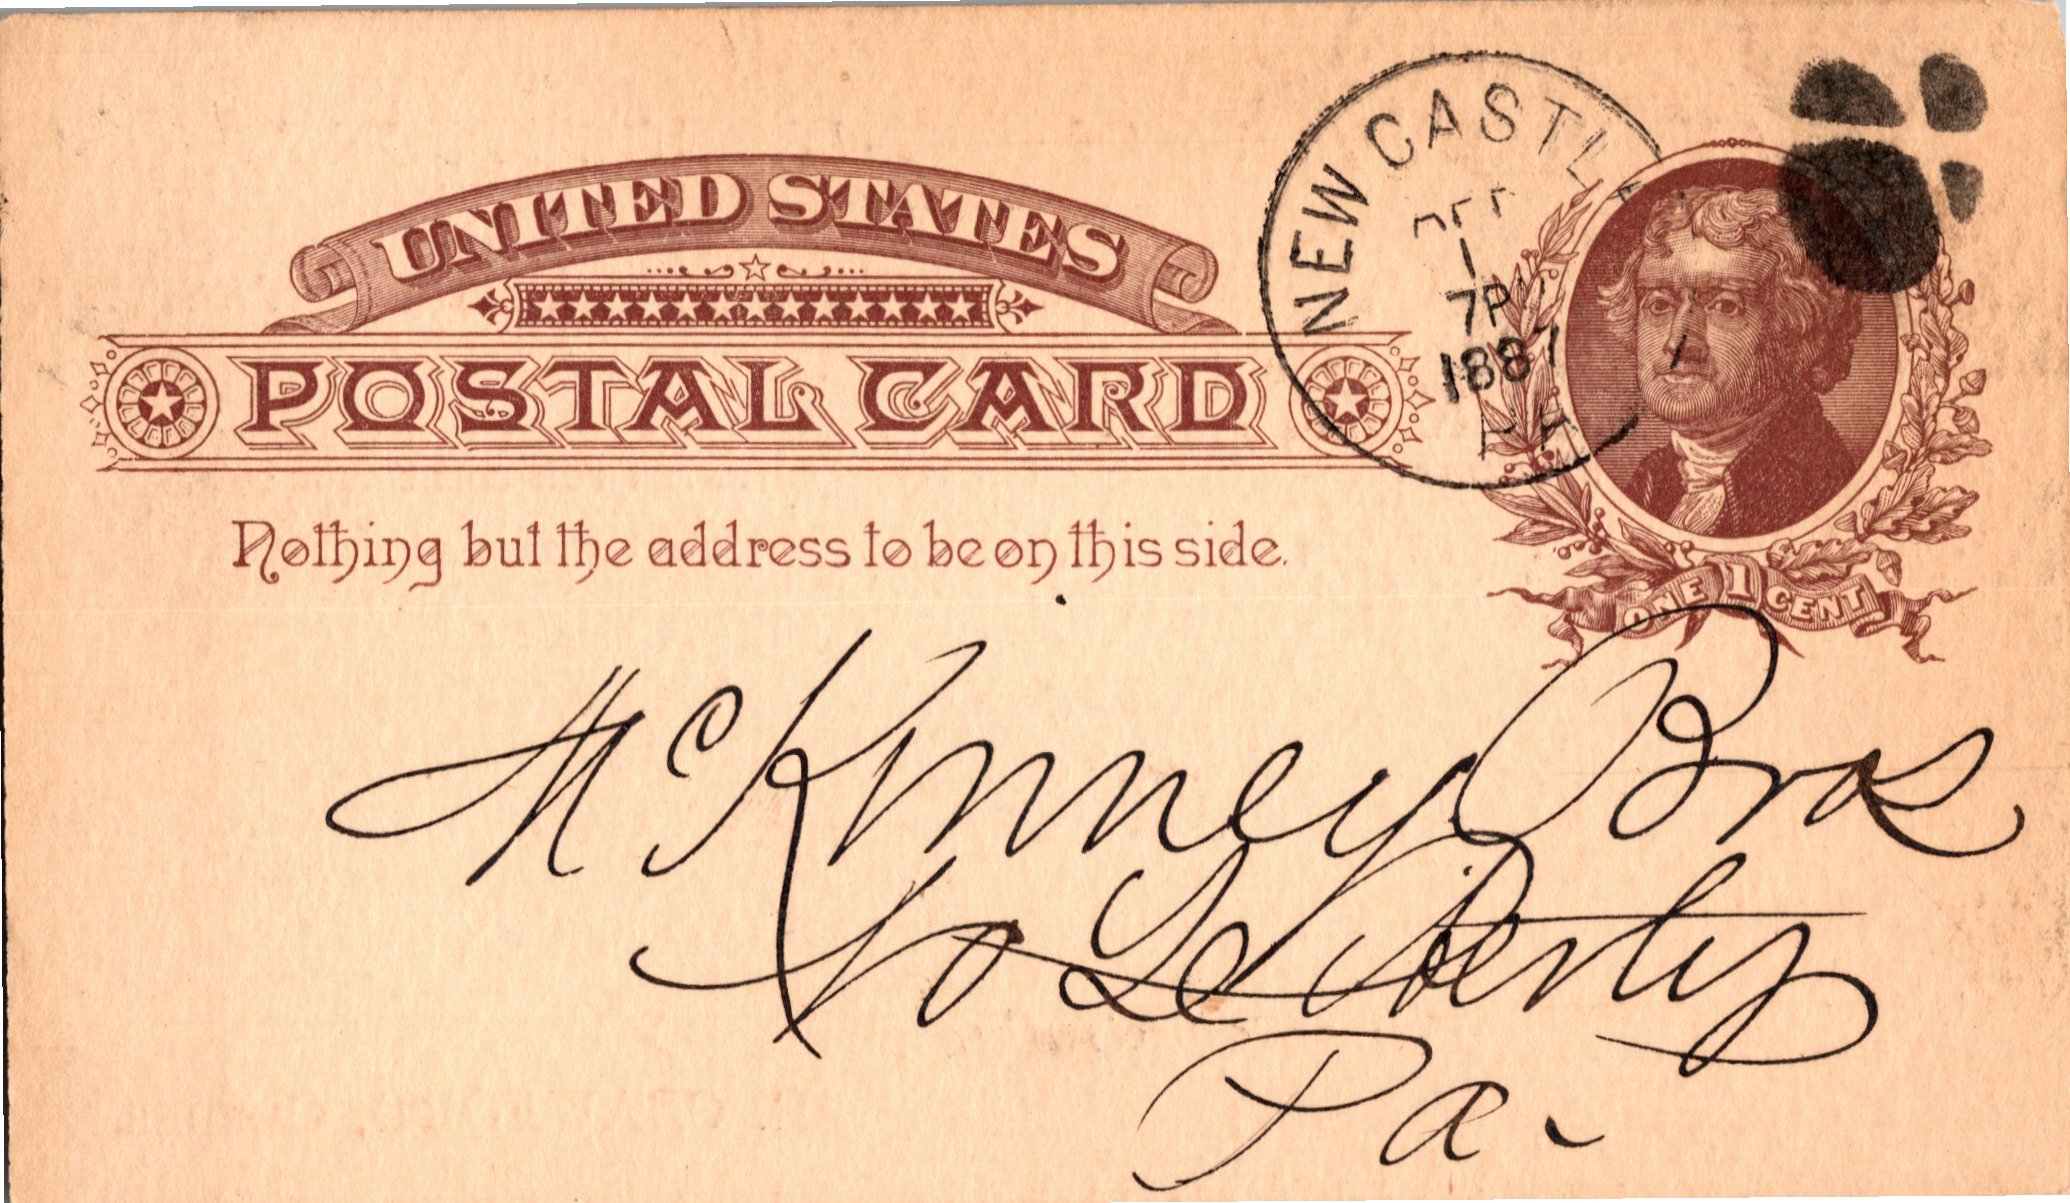 UNITED STATES
POSTAL CARD
Nothing but the address to be on this side.
NEW CASTLE
DEC
1
7P
1887
PA
ONE 1 CENT
McKinney Bros
Liberty
Pa.